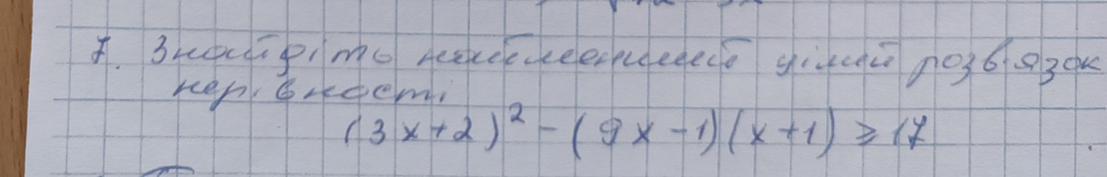 7. Знайдіть найменший цілий розв'язок
нерівності
(3x+2)² - (9x-1)(x+1) ≥ 17